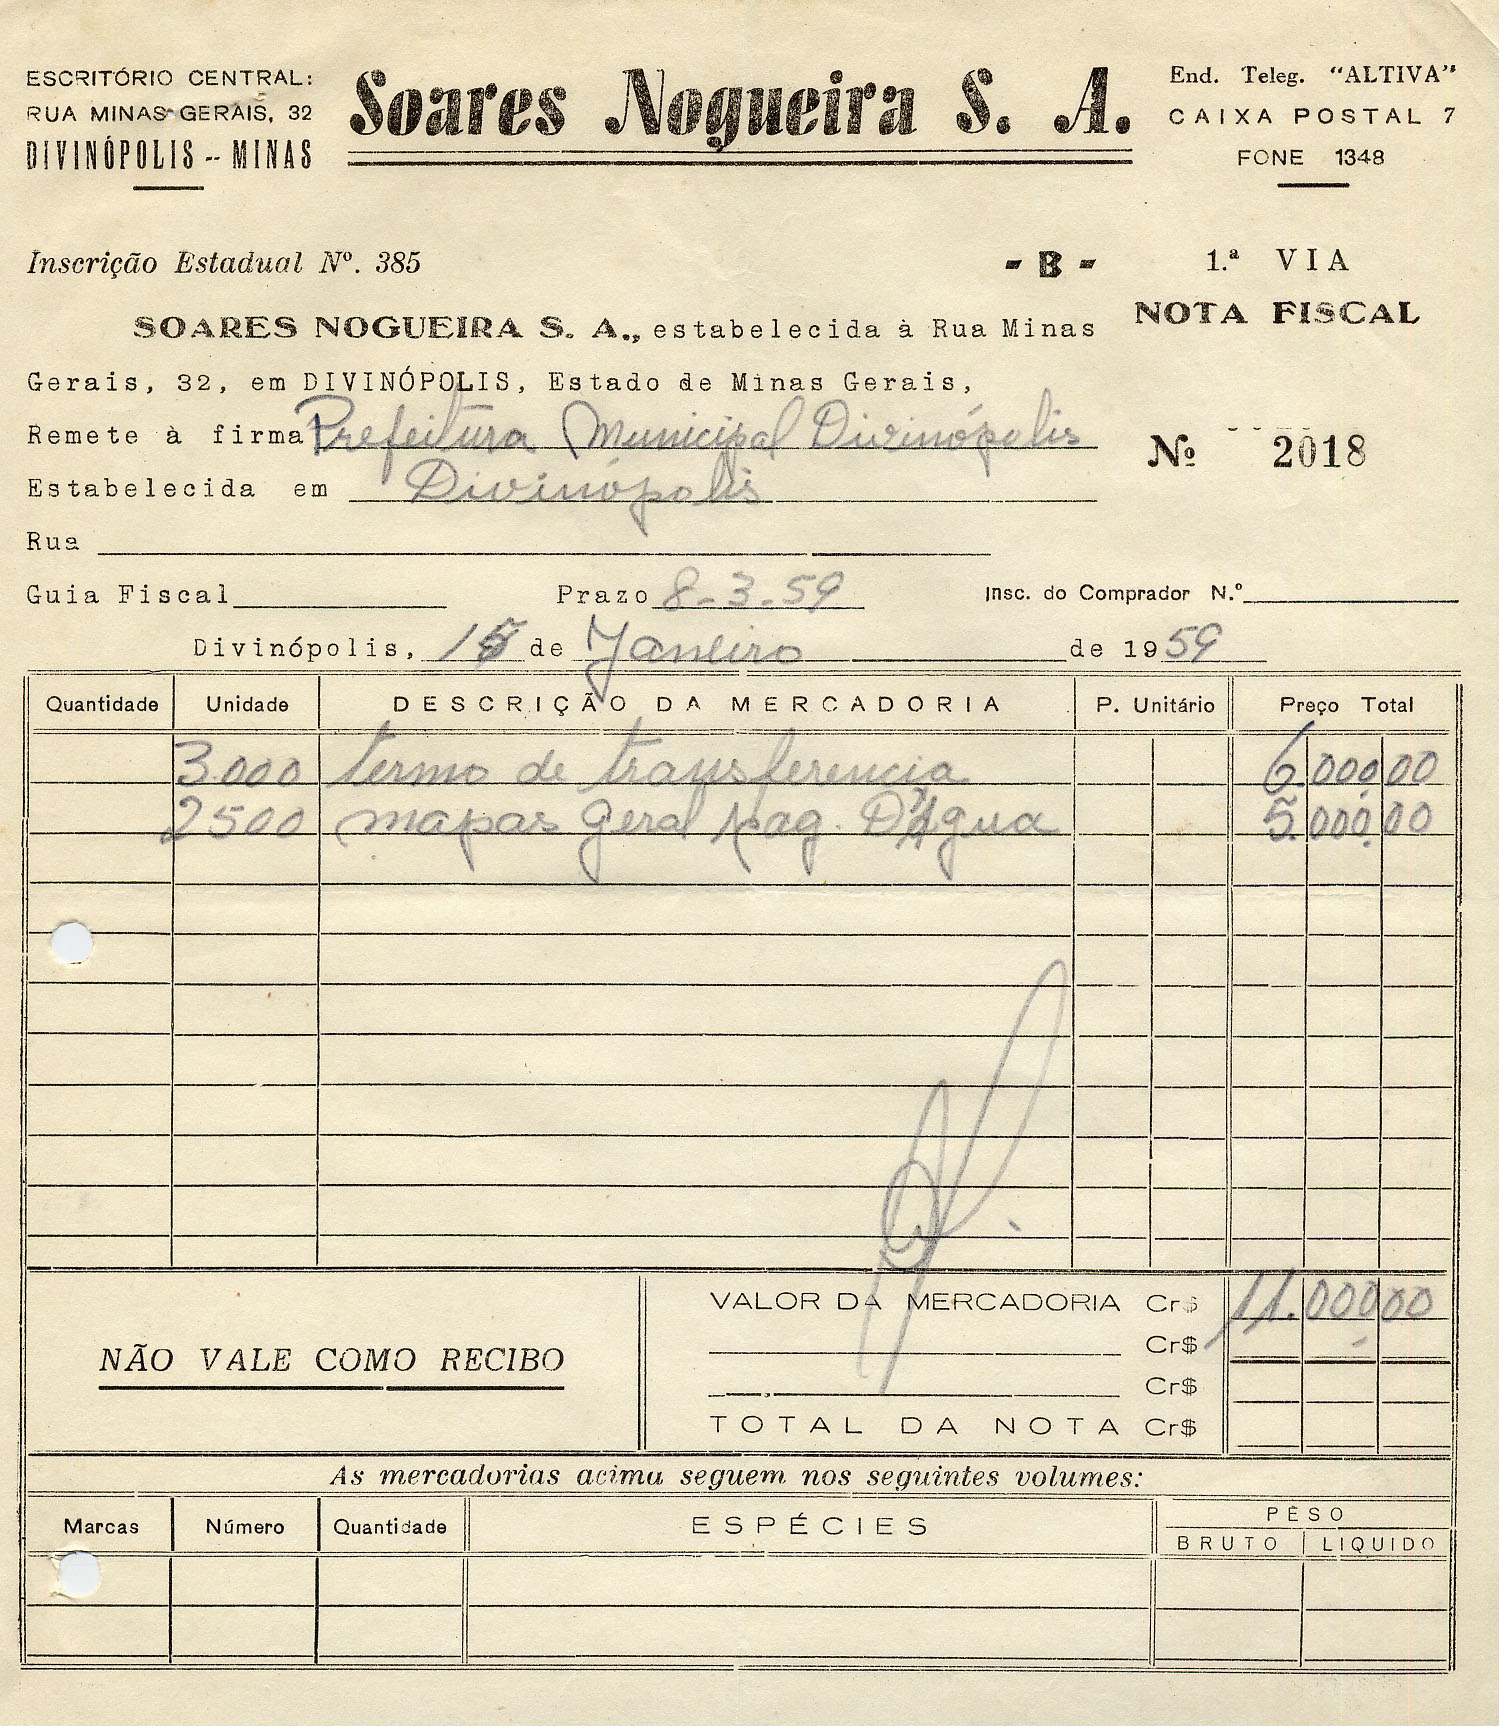 ESCRITÓRIO CENTRAL:
RUA MINAS GERAIS, 32
DIVINÓPOLIS -- MINAS
Soares Nogueira S. A.
End. Teleg. "ALTIVA"
CAIXA POSTAL 7
FONE 1348
Inscrição Estadual Nº. 385
- B -
1.ª VIA
NOTA FISCAL
SOARES NOGUEIRA S. A., estabelecida à Rua Minas
Gerais, 32, em DIVINÓPOLIS, Estado de Minas Gerais,
Remete à firma Prefeitura Municipal Divinópolis
Nº 2018
Estabelecida em Divinópolis
Rua
Guia Fiscal Prazo 8-3-59 Insc. do Comprador N.º
Divinópolis, 15 de Janeiro de 1959
Quantidade Unidade DESCRIÇÃO DA MERCADORIA P. Unitário Preço Total
3.000 termo de transferencia 6.000,00
2500 mapas geral pag. D'Agua 5.000,00
VALOR DA MERCADORIA Cr$ 11.000,00
Cr$
NÃO VALE COMO RECIBO
Cr$
TOTAL DA NOTA Cr$
As mercadorias acima seguem nos seguintes volumes:
Marcas Número Quantidade ESPÉCIES PÊSO
BRUTO LIQUIDO